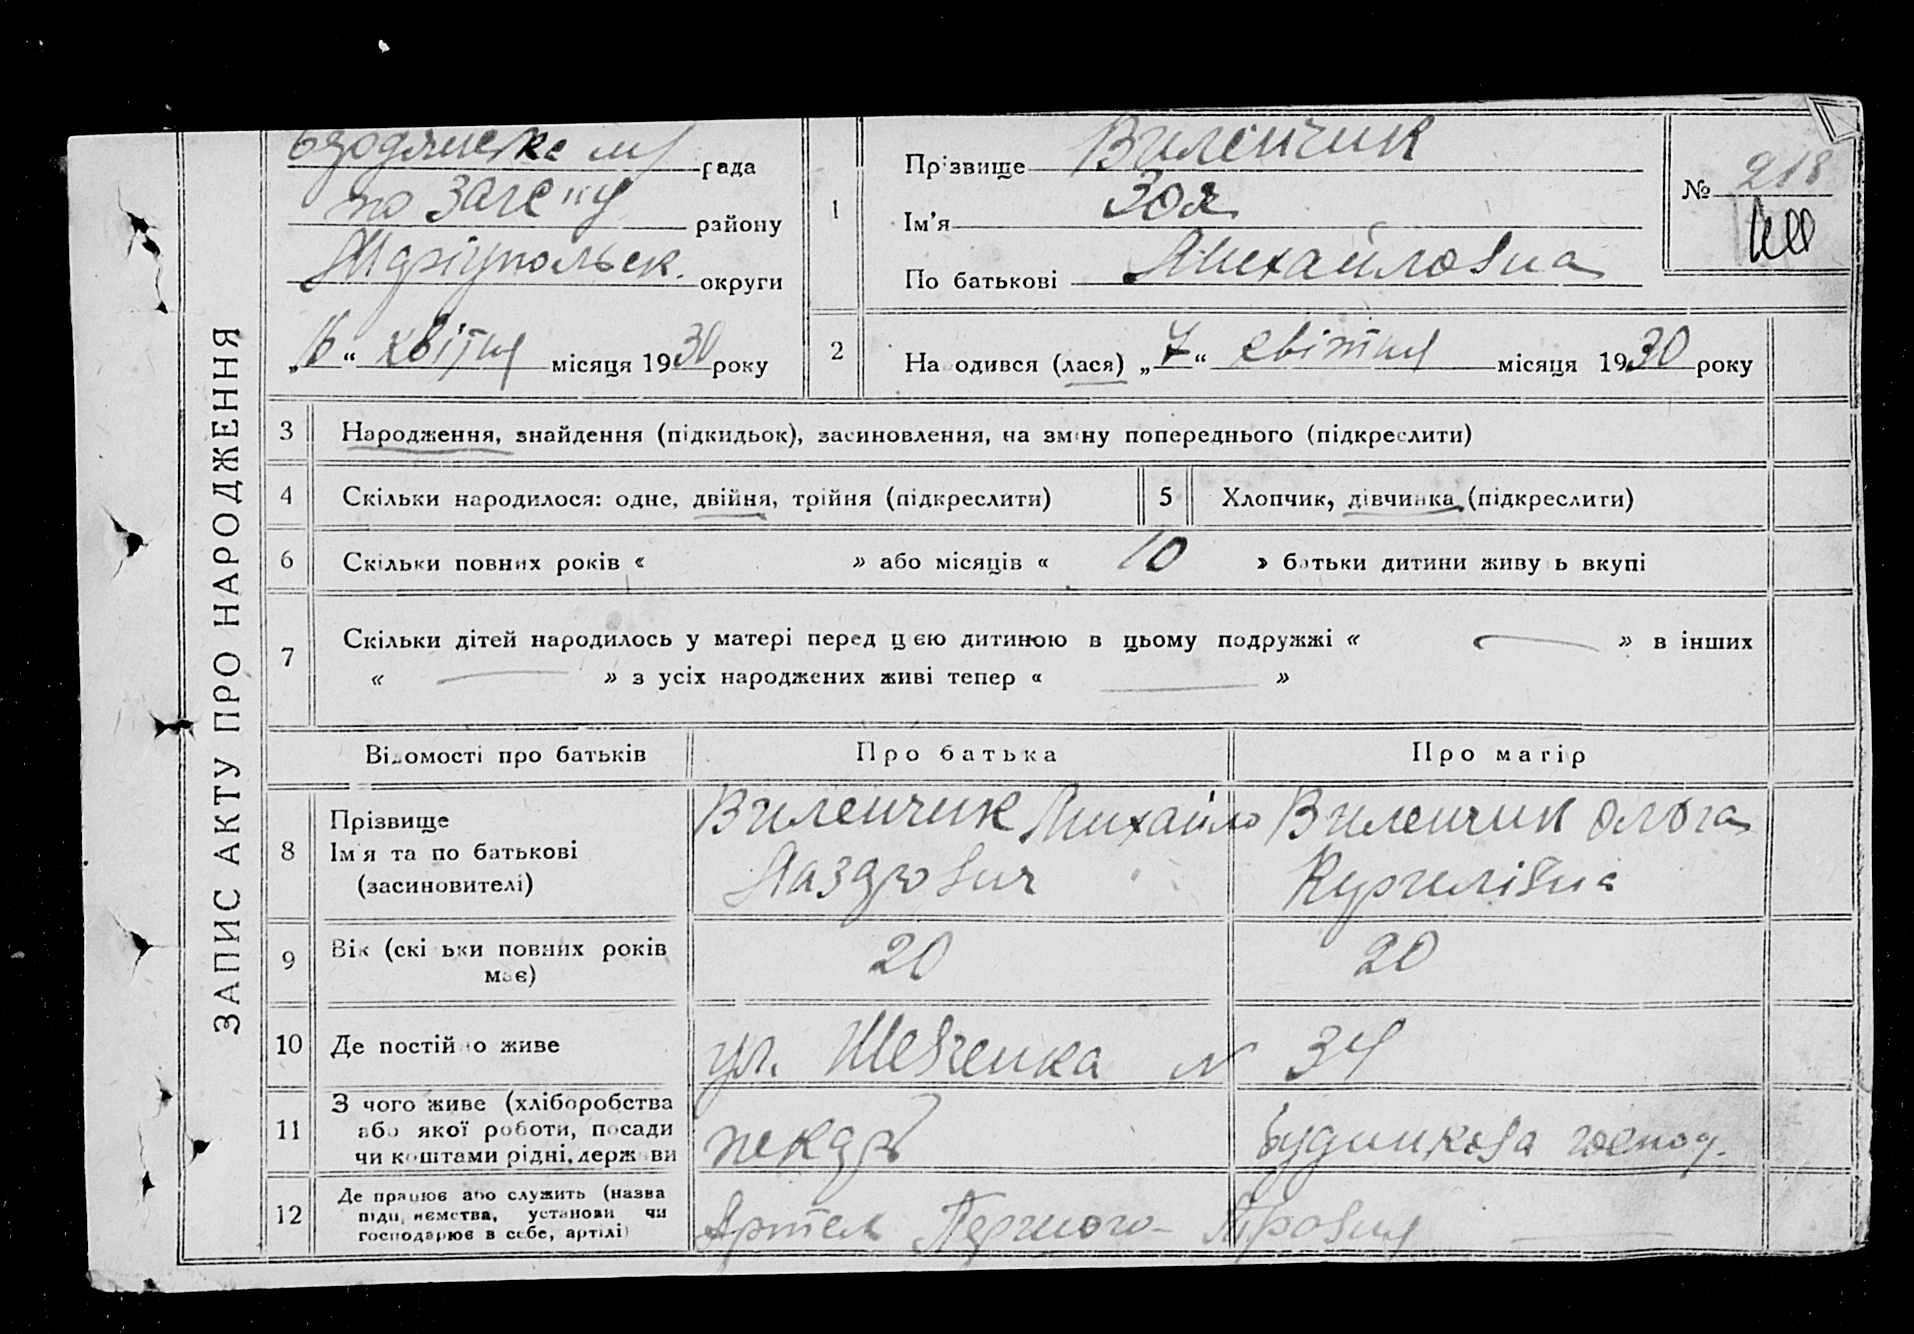 ЗАПИС АКТУ ПРО НАРОДЖЕННЯ
рада
району
Маріупольск. округи
„16“ квітня місяця 1930 року
1
Прізвище Виленчик
Ім'я Зоя
По батькові Михайловна
№ 218
2
Народився (лася) „7“ квітня місяця 1930 року
3 Народження, знайдення (підкидьок), засиновлення, на зміну попереднього (підкреслити)
4 Скільки народилося: одне, двійня, трійня (підкреслити)
5 Хлопчик, дівчинка (підкреслити)
6 Скільки повних років « » або місяців « 10 » батьки дитини живуть вкупі
7 Скільки дітей народилось у матері перед цією дитиною в цьому подружжі « — » в інших
« — » з усіх народжених живі тепер « — »
Відомості про батьків
Про батька
Про матір
8
Прізвище
Ім'я та по батькові
(засиновителі)
Виленчик Михайло
Виленчик Ольга
9
Вік (скільки повних років
має)
20
20
10 Де постійно живе
ул. Шевченка № 34
11
З чого живе (хліборобства
або якої роботи, посади
чи коштами рідні, держави
пекарь
12
Де працює або служить (назва
підприємства, установи чи
господарює в себе, артілі)
Артель